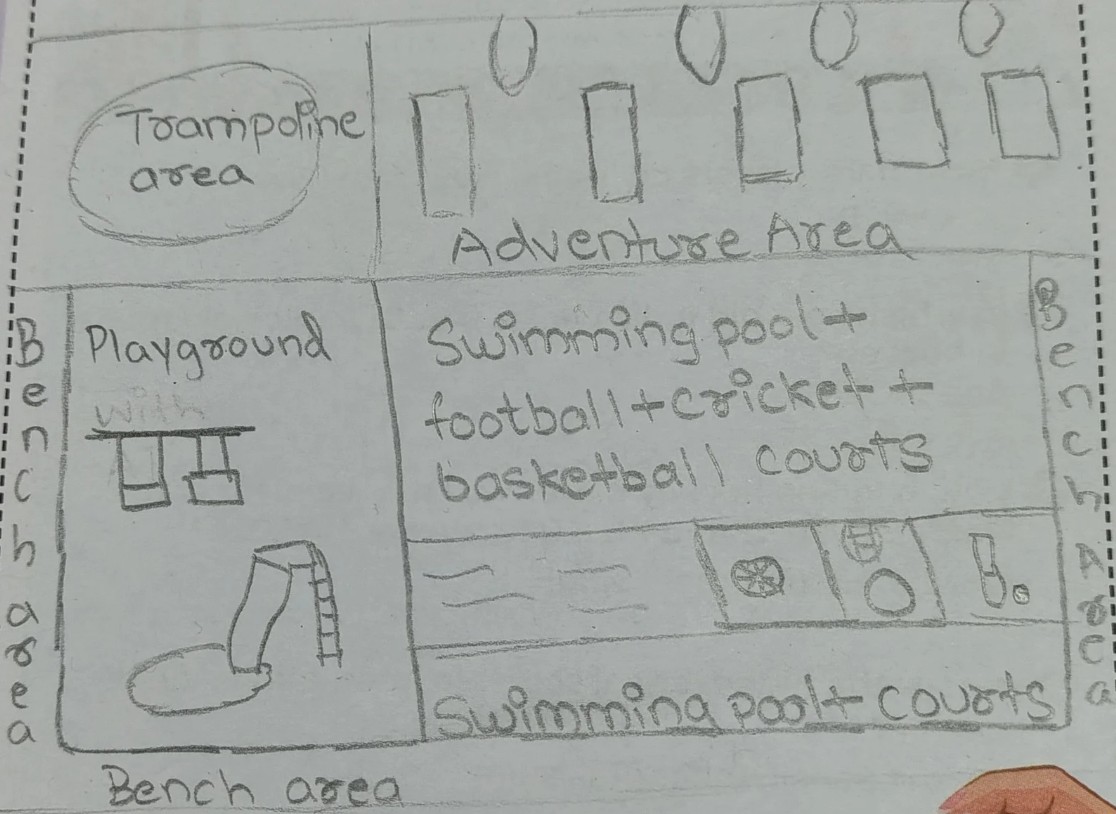 Trampoline
area
Adventure Area
Bench area
Playground
with
Swimming pool+
football+cricket+
basketball courts
Bench Area
Swimming pool+ courts
Bench area